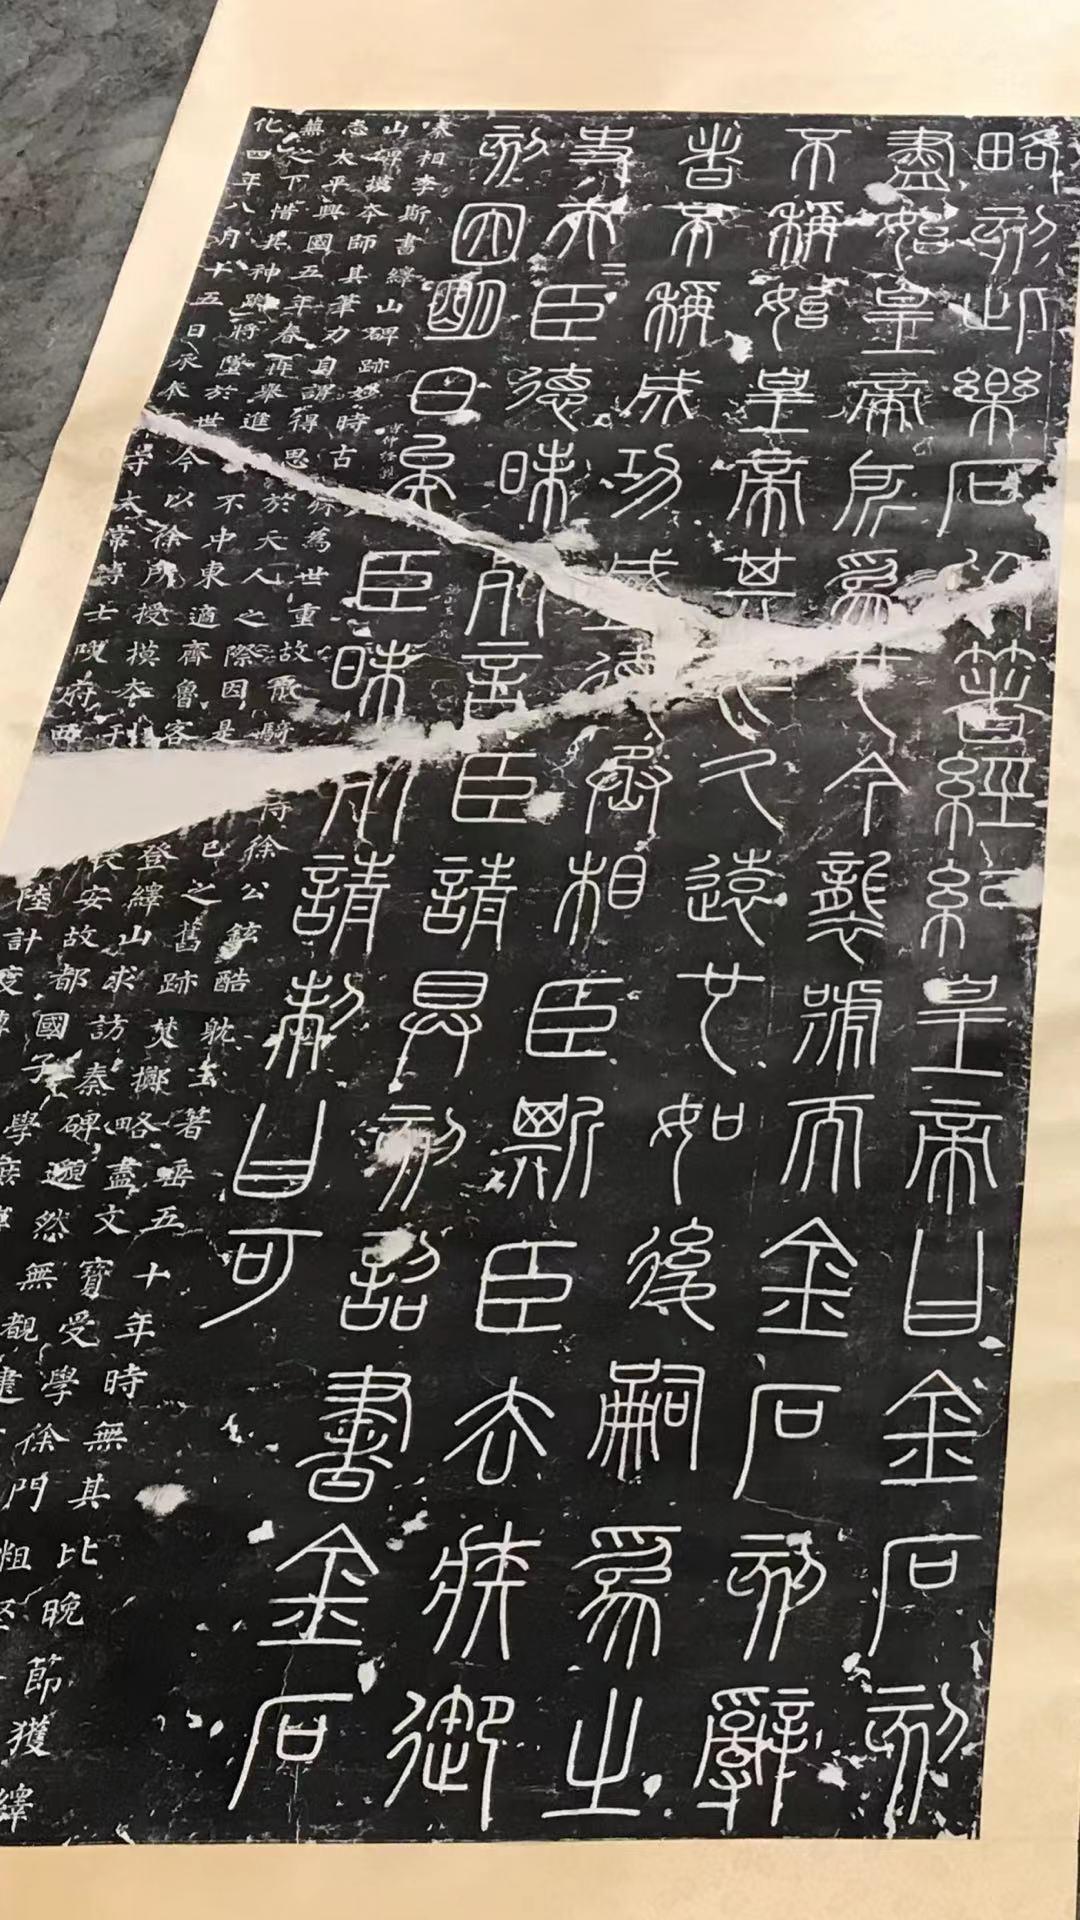 略刻此樂石以著經紀皇帝曰金石刻
盡始皇帝所爲也今襲號而金石刻辭
不稱始皇帝其於久遠也如後嗣爲之
者不稱成功盛德丞相臣斯臣去疾御
史夫臣德昧死言臣請具刻詔書金石
刻因明白矣臣昧死請制曰可
秦相李斯書繹山碑跡妙時古殊為世重故散騎侍徐公鉉酷耽玉著垂五十年時無其比晚節獲繹
山碑摸本師其筆力自謂得思於天人之際因是己之舊跡焚擲略盡文寶受學徐門粗堅
志太平興國五年春再舉進不中東適齊魯客登繹山求訪秦碑邈然無覩逮
蕪之下惜其神蹤將墜於世今以徐所授摸本刊長安故都國子學庶博
化四年八月十五日承奉守太常博士陝府西陸計度轉